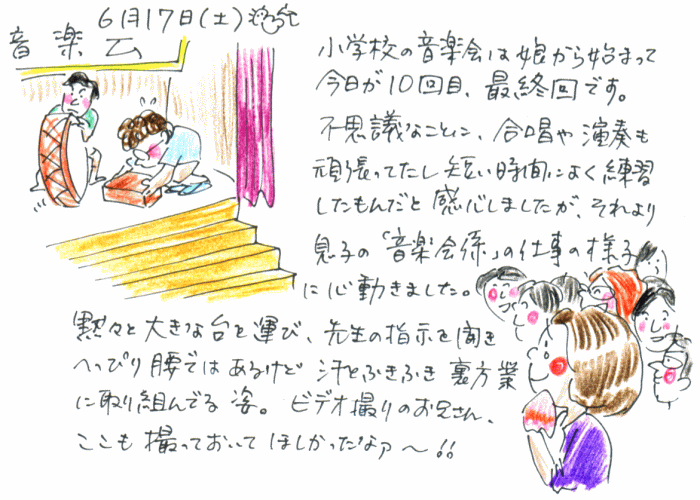 6月17日(土)
音楽会
小学校の音楽会は娘から始まって
今日が10回目、最終回です。
不思議なことに、合唱や演奏も
頑張ってたし短い時間によく練習
したもんだと感心しましたが、それより
息子の「音楽会係」の仕事の様子
に心動きました。
黙々と大きな台を運び、先生の指示を聞き
へっぴり腰ではあるけど汗をふきふき裏方業
に取り組んでる姿。ビデオ撮りのお兄さん、
ここも撮っておいてほしかったなァ〜!!